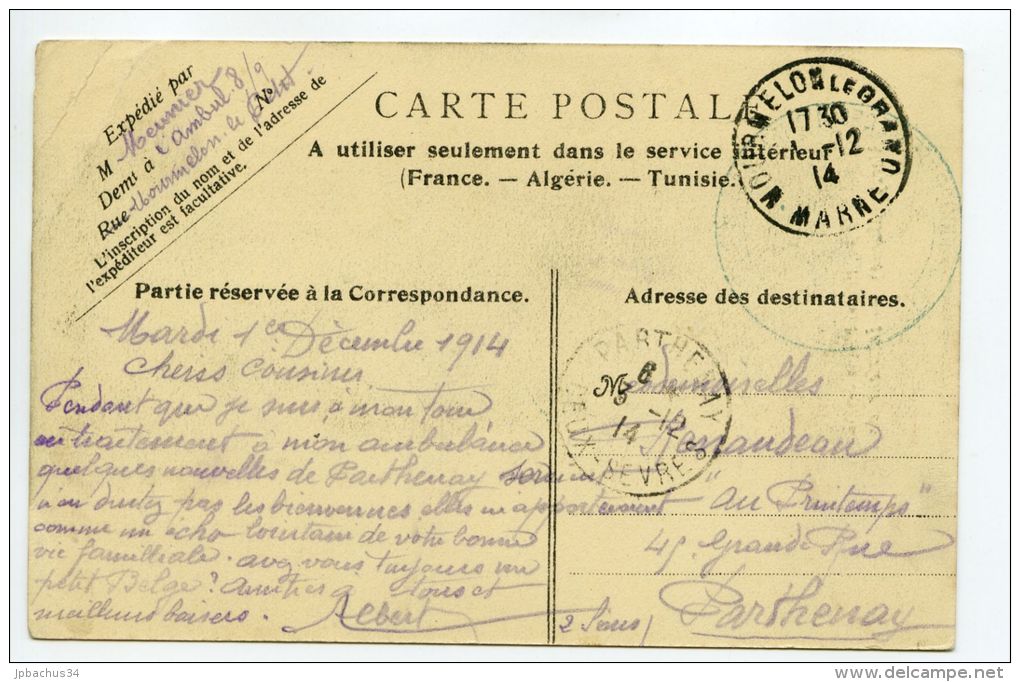 Expédié par
M Meunier
Demi à l'Ambul. 8/9
Rue Mourmelon le Petit
No
L'inscription du nom et de l'adresse de
l'expéditeur est facultative.
CARTE POSTALE
A utiliser seulement dans le service intérieur
(France. — Algérie. — Tunisie.)
MOURMELON LE GRAND
17 30
1-12
14
MARNE
Partie réservée à la Correspondance.
Adresse des destinataires.
Mardi 1er Décembre 1914
chères cousines
Pendant que je suis à mon tour
en traitement à mon ambulance
quelques nouvelles de Parthenay seraient
n'en doutez pas les bienvenues elles m'apporteraient
comme un écho lointain de votre bonne
vie familliale. avez vous toujours un
petit Belge? amitiés à tous et
meilleurs baisers. Albert
PARTHENAY
6
5-12
14
DEUX-SEVRES
Mesdemoiselles
"Au Printemps"
45. Grande Rue
Parthenay
2 Sevres
jpbachus34
www.delcampe.net